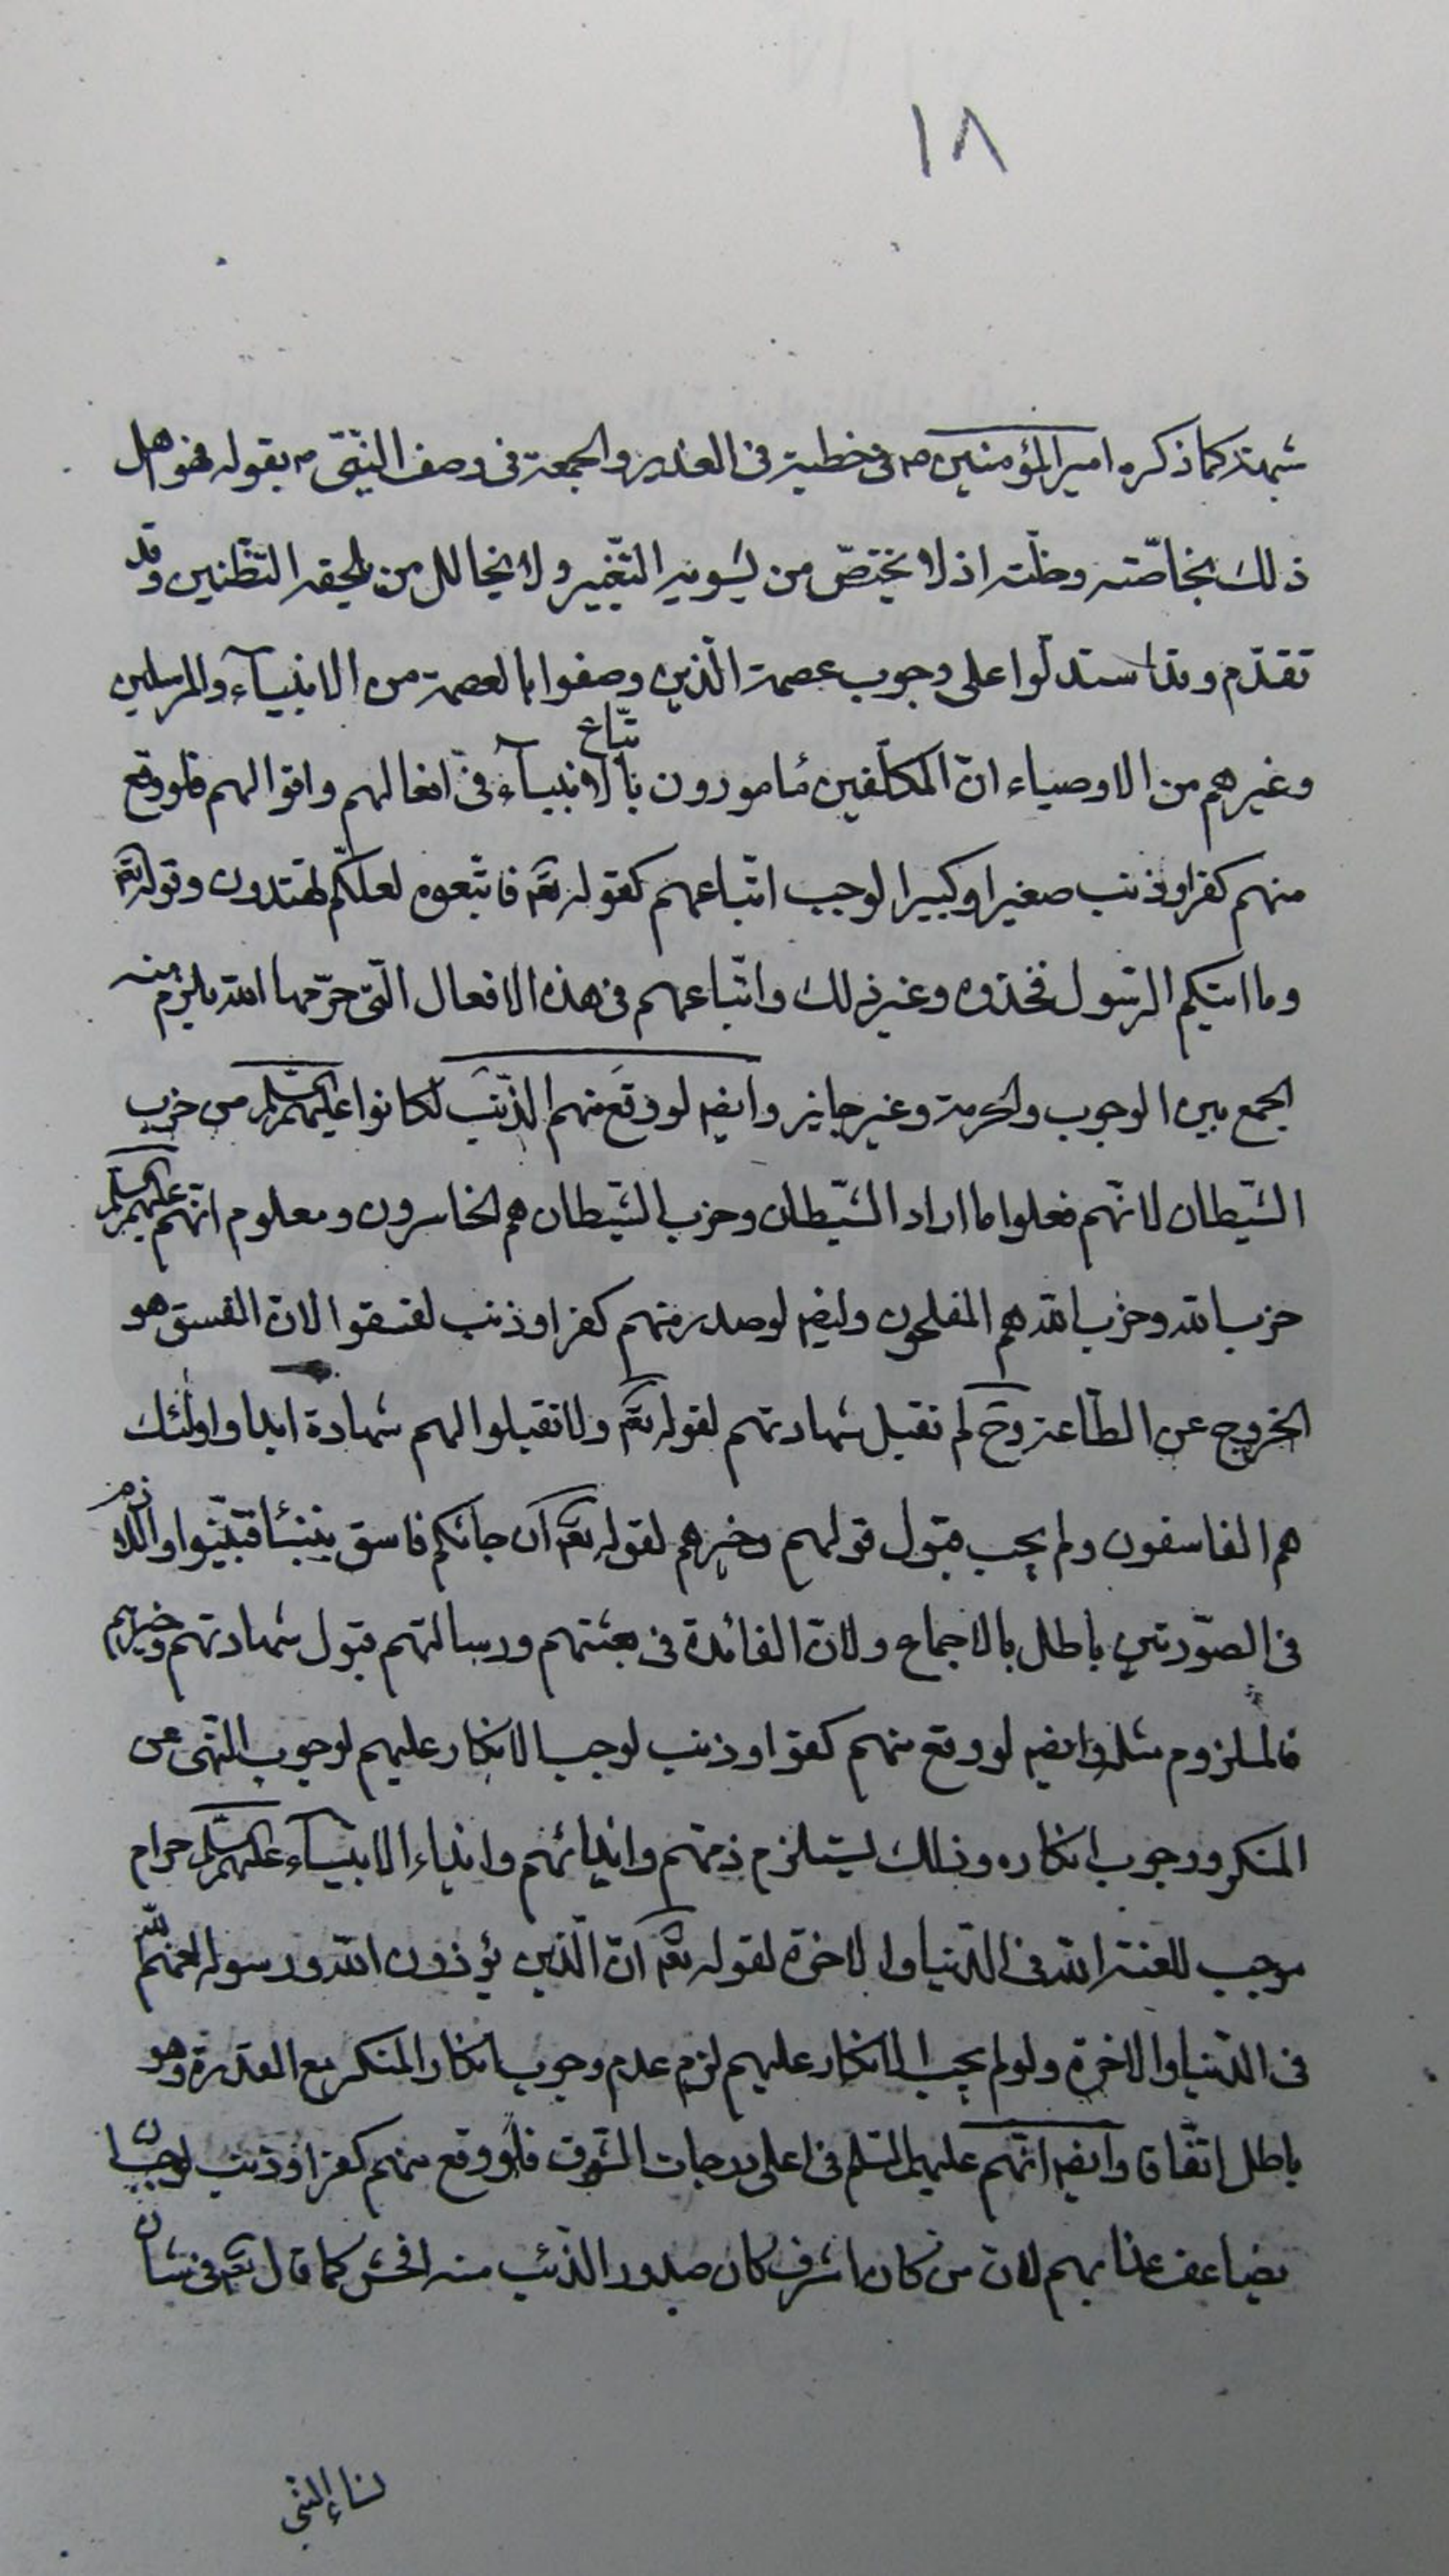 ١٨
شبهته كما ذكره امير المؤمنين ع فى خطبته فى الغدير والجمعة فى وصف النبّى ص بقوله فهو اهل
ذلك بخاصّته وخلّته اذ لا يختصّ من يشوبه التّغيير ولا يخالل من يلحقه التّظنين وقد
تقدّم وقد استدلّوا على وجوب عصمة الّذين وصفوا بالعصمة من الانبيآء والمرسلين
وغيرهم من الاوصياء انّ المكلّفين مأمورون باتّباع الانبيآء فى افعالهم واقوالهم فلو وقع
منهم كفر او ذنب صغيرا وكبيرا لوجب اتّباعهم كقوله تعم فاتّبعوه لعلّكم تهتدون وقوله تعم
وما اتيكم الرّسول فخذوه وغير ذلك واتّباعهم فى هذه الافعال الّتى حرّمها الله يلزم منه
الجمع بين الوجوب والحرمة وغير جايز وايضا لو وقع منهم الذّنب لكانوا عليهم السّلم من حزب
الشّيطان لانّهم فعلوا ما اراد الشّيطان وحزب الشّيطان هم الخاسرون ومعلوم انّهم عليهم السّلم
حزب الله وحزب الله هم المفلحون وايضا لو صدر منهم كفر او ذنب لفسقوا لانّ الفسق هو
الخروج عن الطّاعة وح لم تقبل شهادتهم لقوله تعم ولا تقبلوا لهم شهادة ابدا واولئك
هم الفاسقون ولم يجب قبول قولهم وخبرهم لقوله تعم ان جائكم فاسق بنبئا فتبيّنوا واللّازم
فى الصّورتين باطل بالاجماع ولانّ الفائدة فى بعثتهم ورسالتهم قبول شهادتهم وخبرهم
فالملزوم مثله وايضا لو وقع منهم كفر او ذنب لوجب الانكار عليهم لوجوب النّهى عن
المنكر ووجوب انكاره وذلك يستلزم ذمّهم وايذائهم وايذاء الانبيآء عليهم السّلم حرام
موجب للعنة الله فى الدّنيا والاخرة لقوله تعم انّ الّذين يؤذون الله ورسوله لعنهم الله
فى الدّنيا والاخرة ولو لم يجب الانكار عليهم لزم عدم وجوب انكار المنكر مع القدرة وهو
باطل اتّفاقا وايضا انّهم عليهم السّلم فى اعلى درجات الشّرف فلو وقع منهم كفر او ذنب لوجب ان
يضاعف عذابهم لانّ من كان اشرف كان صدور الذّنب منه افحش كما قال تعم فى شان
نساء النّبى